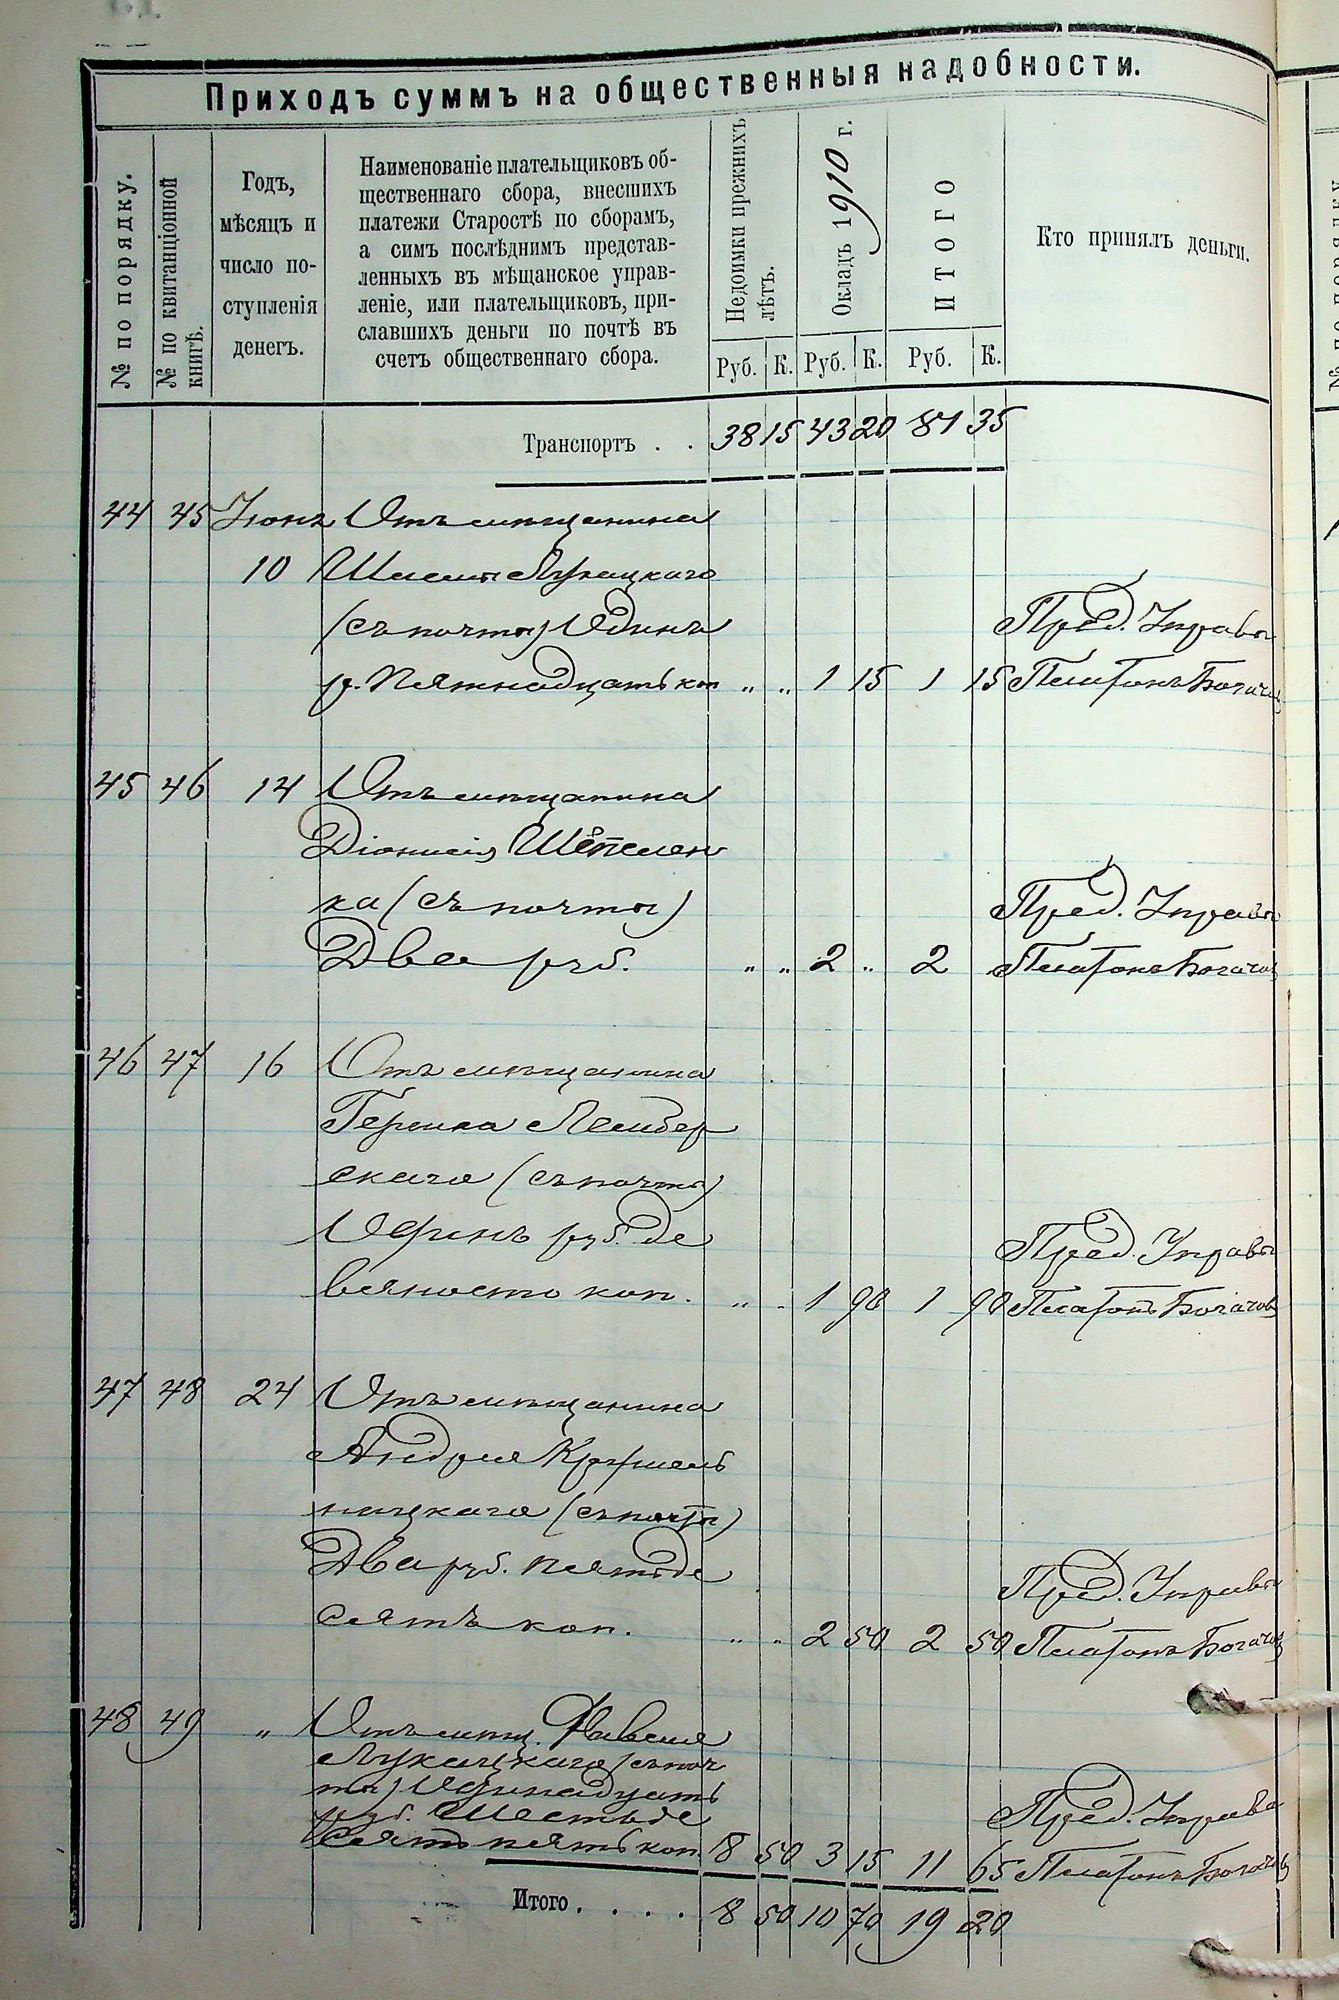 Приходъ суммъ на общественныя надобности.
№ по порядку.
№ по квитанціонной
книгѣ.
Годъ,
мѣсяцъ и
число по-
ступленія
денегъ.
Наименованіе плательщиковъ об-
щественнаго сбора, внесшихъ
платежи Старостѣ по сборамъ,
а симъ послѣднимъ представ-
ленныхъ въ мѣщанское управ-
леніе, или плательщиковъ, при-
славшихъ деньги по почтѣ въ
счетъ общественнаго сбора.
Недоимки прежнихъ
лѣтъ.
Окладъ 1910 г.
ИТОГО
Кто принялъ деньги.
Руб. К. Руб. К. Руб. К.
Транспортъ . . 38 15 43 20 81 35
44 45 Іюнь Отъ мѣщанина
10 Лукацкаго
(съ почты) Одинъ
р. Пятнадцать коп " " 1 15 1 15
Пред. Управы
Платонъ Богачов
45 46 14 Отъ мѣщанина
Діонисія
ка (съ почты)
Два руб. " " 2 " 2
Пред. Управы
Платонъ Богачов
46 47 16 Отъ мѣщанина
Гершка Лембер
скаго (съ почты)
Одинъ руб. де
вяносто коп. " " 1 90 1 90
Пред. Управы
Платонъ Богачов
47 48 24 Отъ мѣщанина
Андрея Крушель
ницкаго (съ почты)
Два руб. пятьде
сятъ коп. " " 2 50 2 50
Пред. Управы
Платонъ Богачов
48 49 " Отъ мѣщ.
Лукацкаго (съ поч
ты) Одинадцать
руб. Шестьде
сятъ пять коп. 8 50 3 15 11 65
Пред. Управы
Платонъ Богачов
Итого . . . . 8 50 10 70 19 20